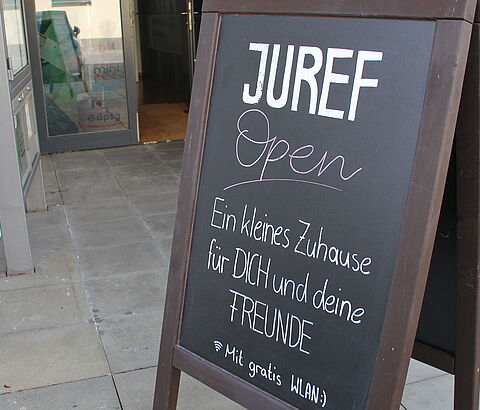 JUREF
Open
Ein kleines Zuhause
für DICH und deine
FREUNDE
Mit gratis WLAN:)
dpsg